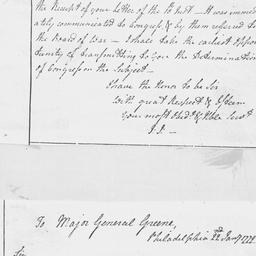 the Receipt of your Letter of the 12 Inst — It was immed
iately communicated to Congress, & by them referred to
the Board of War — I shall take the earliest oppor
tunity of transmitting to you the Determination
of Congress on the Subject —
I have the Honor to be Sir
With great Respect & Esteem
Your most Obedt. & Hble Servt.
J. J. —
To Major General Greene,
Philadelphia 22d Jany 1779
Sir